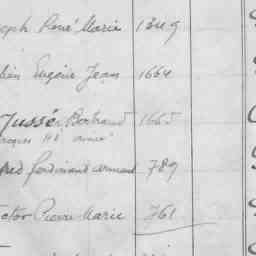 seph René Marie 1349
lien Eugène Jean 1664
Jussé Bertrand 1665
fred ferdinand armand 789
ictor Pierre Marie 761